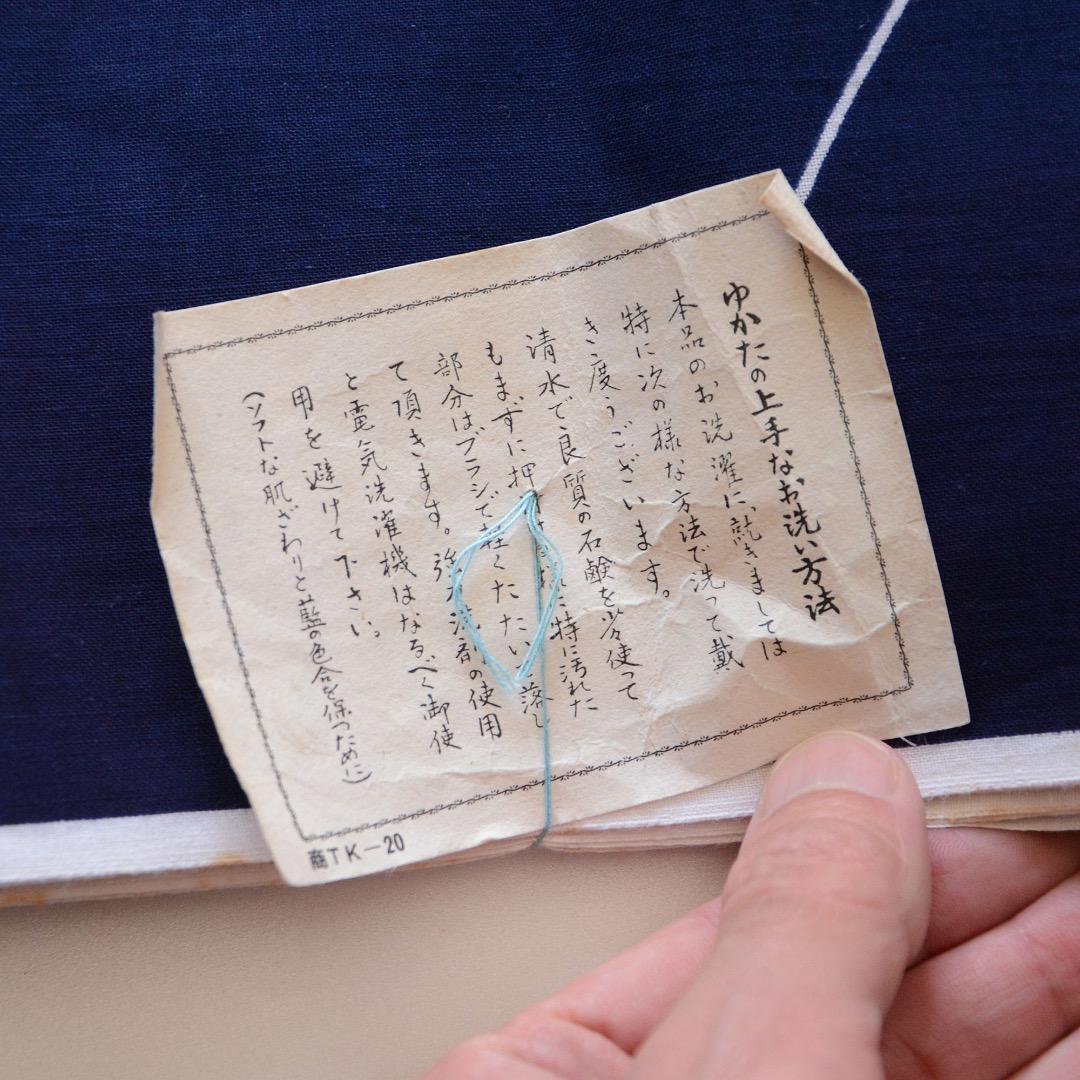 ゆかたの上手なお洗い方法
本品のお洗濯に就きましては
特に次の様な方法で洗って戴
き度うございます。
清水で良質の石鹸を少々使って
もまずに押 特に汚れた
部分はブラシで軽くたたい 落し
て頂きます。強 洗剤の使用
と電気洗濯機はなるべく御使
用を避けて下さい。
(ソフトな肌ざわりと藍の色合を保つために)
商TK-20